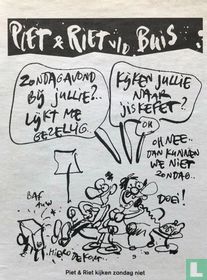 PIET & RIET v/d BUIS
ZONDAGAVOND
BIJ JULLIE?..
LIJKT ME
GEZELLIG.
KIJKEN JULLIE
NAAR
JISKEFET?
OH
OH NEE..
DAN KUNNEN
WE NIET
ZONDAG..
DOEI!
Piet & Riet kijken zondag niet
catawiki